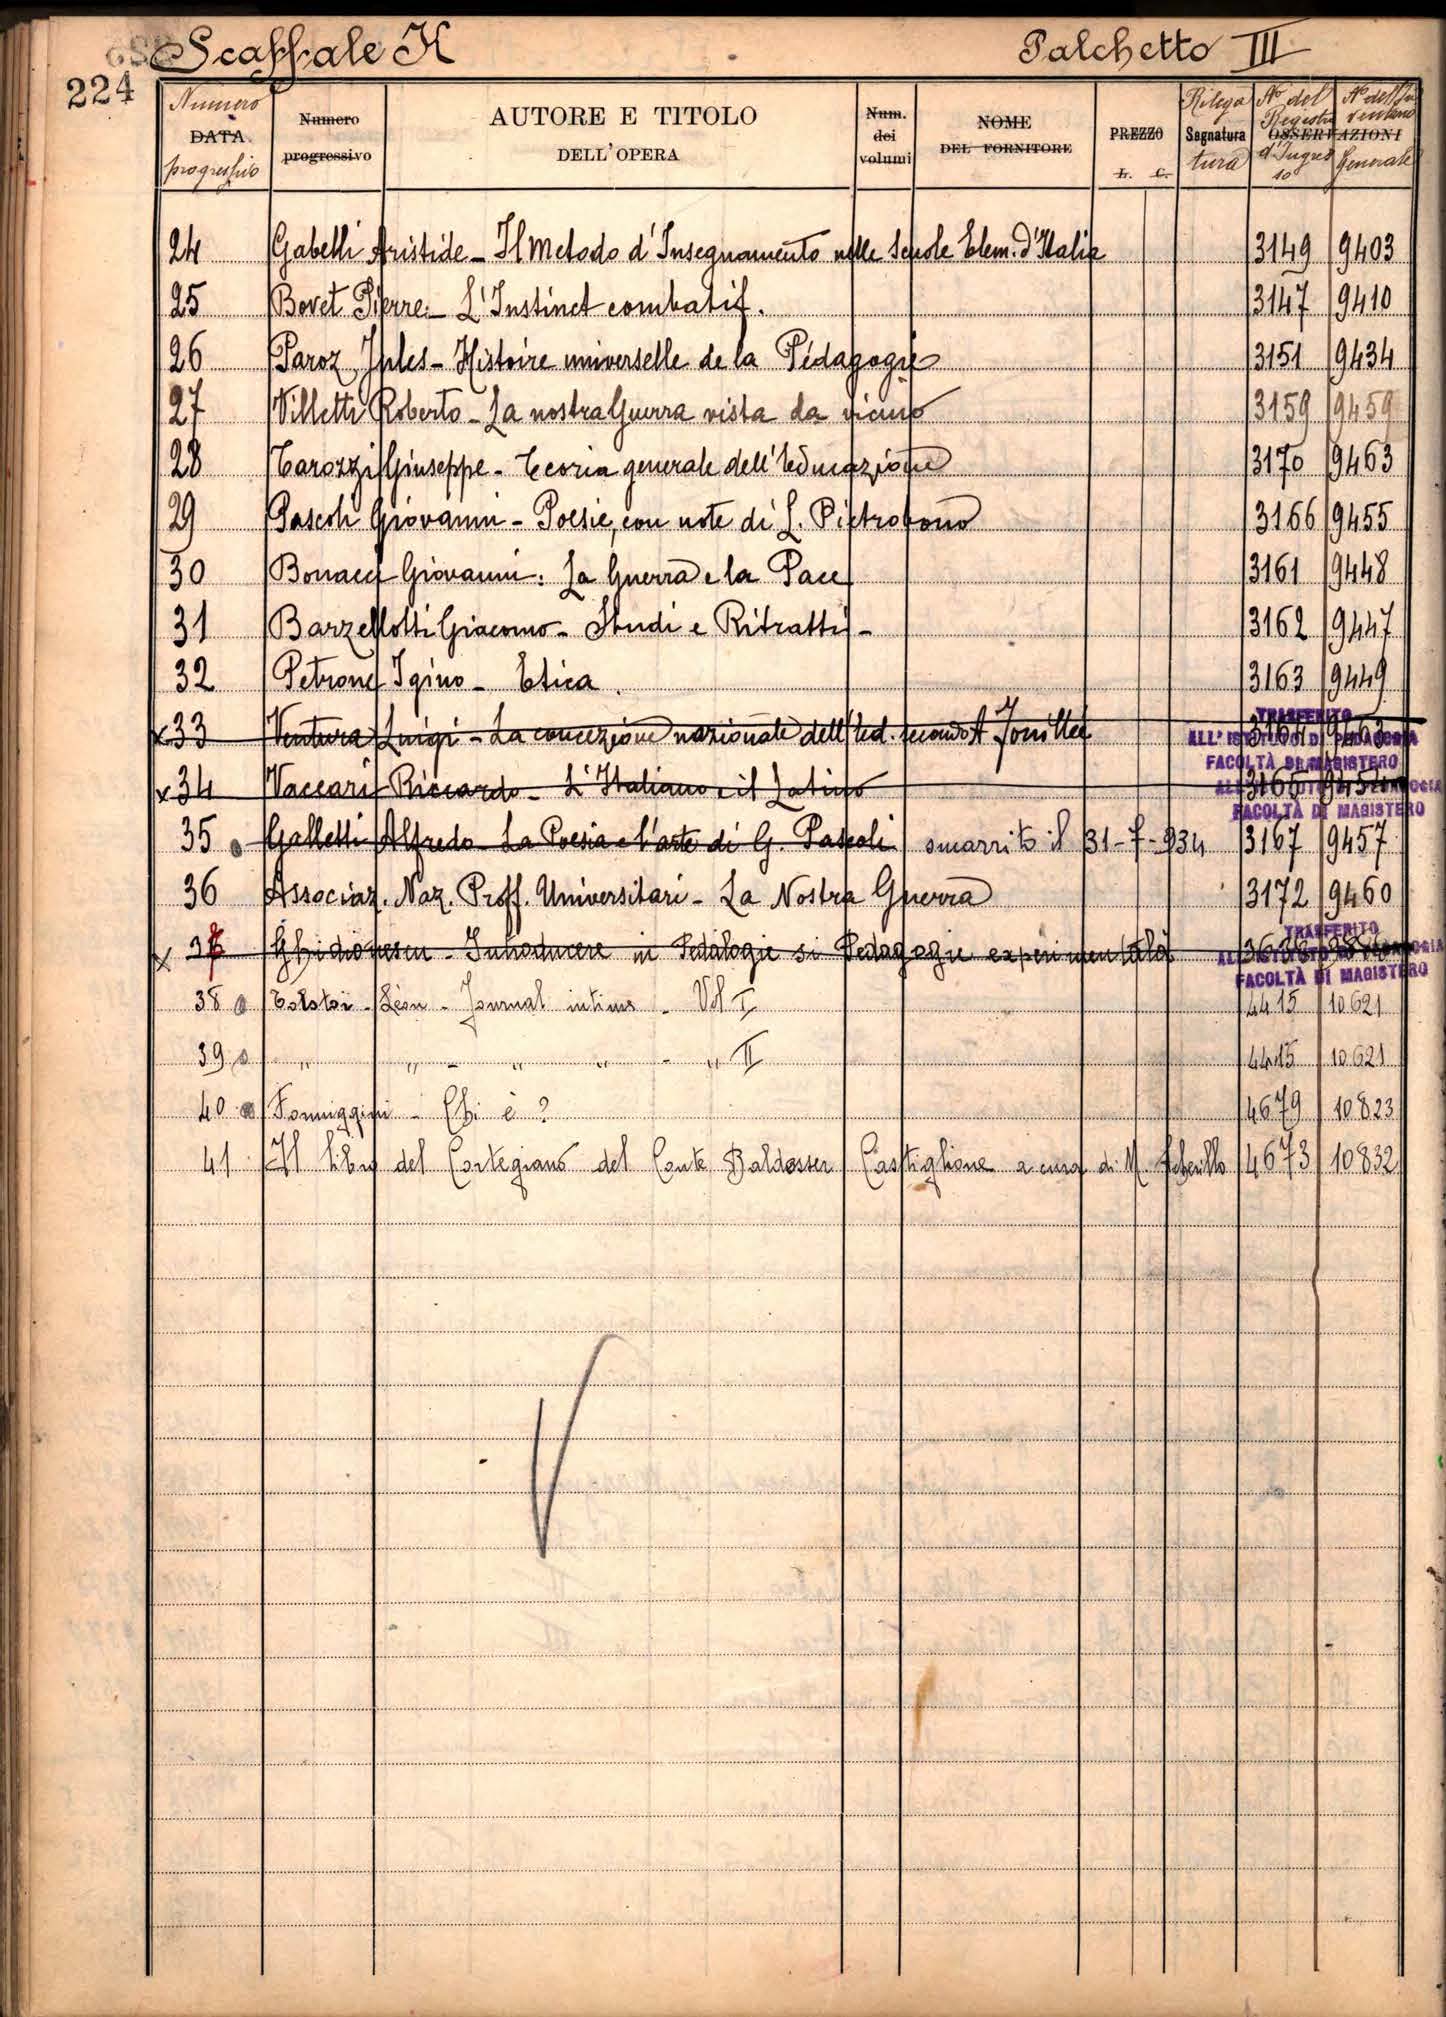 Scaffale K Palchetto III
224
Numero progressivo DATA Numero progressivo AUTORE E TITOLO DELL'OPERA Num. dei volumi NOME DEL FORNITORE PREZZO L. C. Rilegatura Segnatura No del Registro d'Ingresso OSSERVAZIONI No dell'Inventario Generale
24 Gabelli Aristide - Il Metodo d'Insegnamento nelle Scuole Elem. d'Italia 3149 9403
25 Bovet Pierre - L'Instinct combatif. 3147 9410
26 Paroz Jules - Histoire universelle de la Pédagogie 3151 9434
27 Villetti Roberto - La nostra Guerra vista da vicino 3159 9459
28 Tarozzi Giuseppe - Teoria generale dell'Educazione 3170 9463
29 Pascoli Giovanni - Poesie, con note di L. Pietrobono 3166 9455
30 Bonacci Giovanni: La Guerra e la Pace 3161 9448
31 Barzellotti Giacomo - Studi e Ritratti - 3162 9447
32 Petrone Igino - Etica. 3163 9449
x 33 Ventura Luigi - La concezione nazionale dell'Ed. secondo A Fouillée
TRASFERITO
ALL'ISTITUTO DI PEDAGOGIA
FACOLTÀ DI MAGISTERO
x 34 Vaccari Riccardo - L'Italiano e il Latino 3165
ALL'ISTITUTO DI PEDAGOGIA
FACOLTÀ DI MAGISTERO
35 Galletti Alfredo - La Poesia e l'arte di G. Pascoli smarrito il 31-7-934 3167 9457
36 Associaz. Naz. Proff. Universitari - La Nostra Guerra 3172 9460
x 37 Introducere in Pedologie si Pedagogie experimentală
TRASFERITO
ALL'ISTITUTO DI PEDAGOGIA
FACOLTÀ DI MAGISTERO
38 Tolstoi - Léon - Journal intime - Vol I 4415 10621
39 " " - " - " II 4415 10621
40 Formiggini - Chi è? 4679 10823
41 Il libro del Cortegiano del Conte Baldesser Castiglione a cura di M. Scherillo 4673 10832